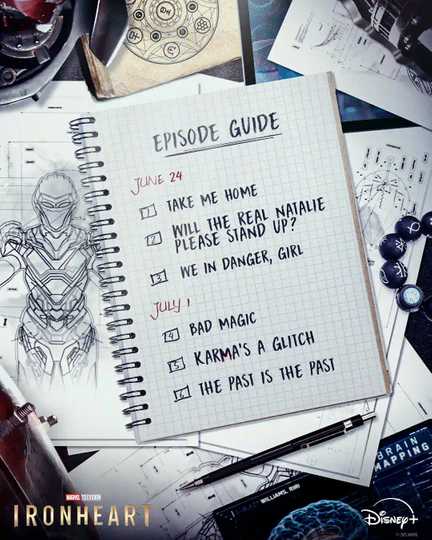 EPISODE GUIDE
JUNE 24
1 TAKE ME HOME
2 WILL THE REAL NATALIE
PLEASE STAND UP?
3 WE IN DANGER, GIRL
JULY 1
4 BAD MAGIC
5 KARMA'S A GLITCH
6 THE PAST IS THE PAST
BRAIN
MAPPING
WILLIAMS, RIRI
MARVEL TELEVISION
IRONHEART
Disney+